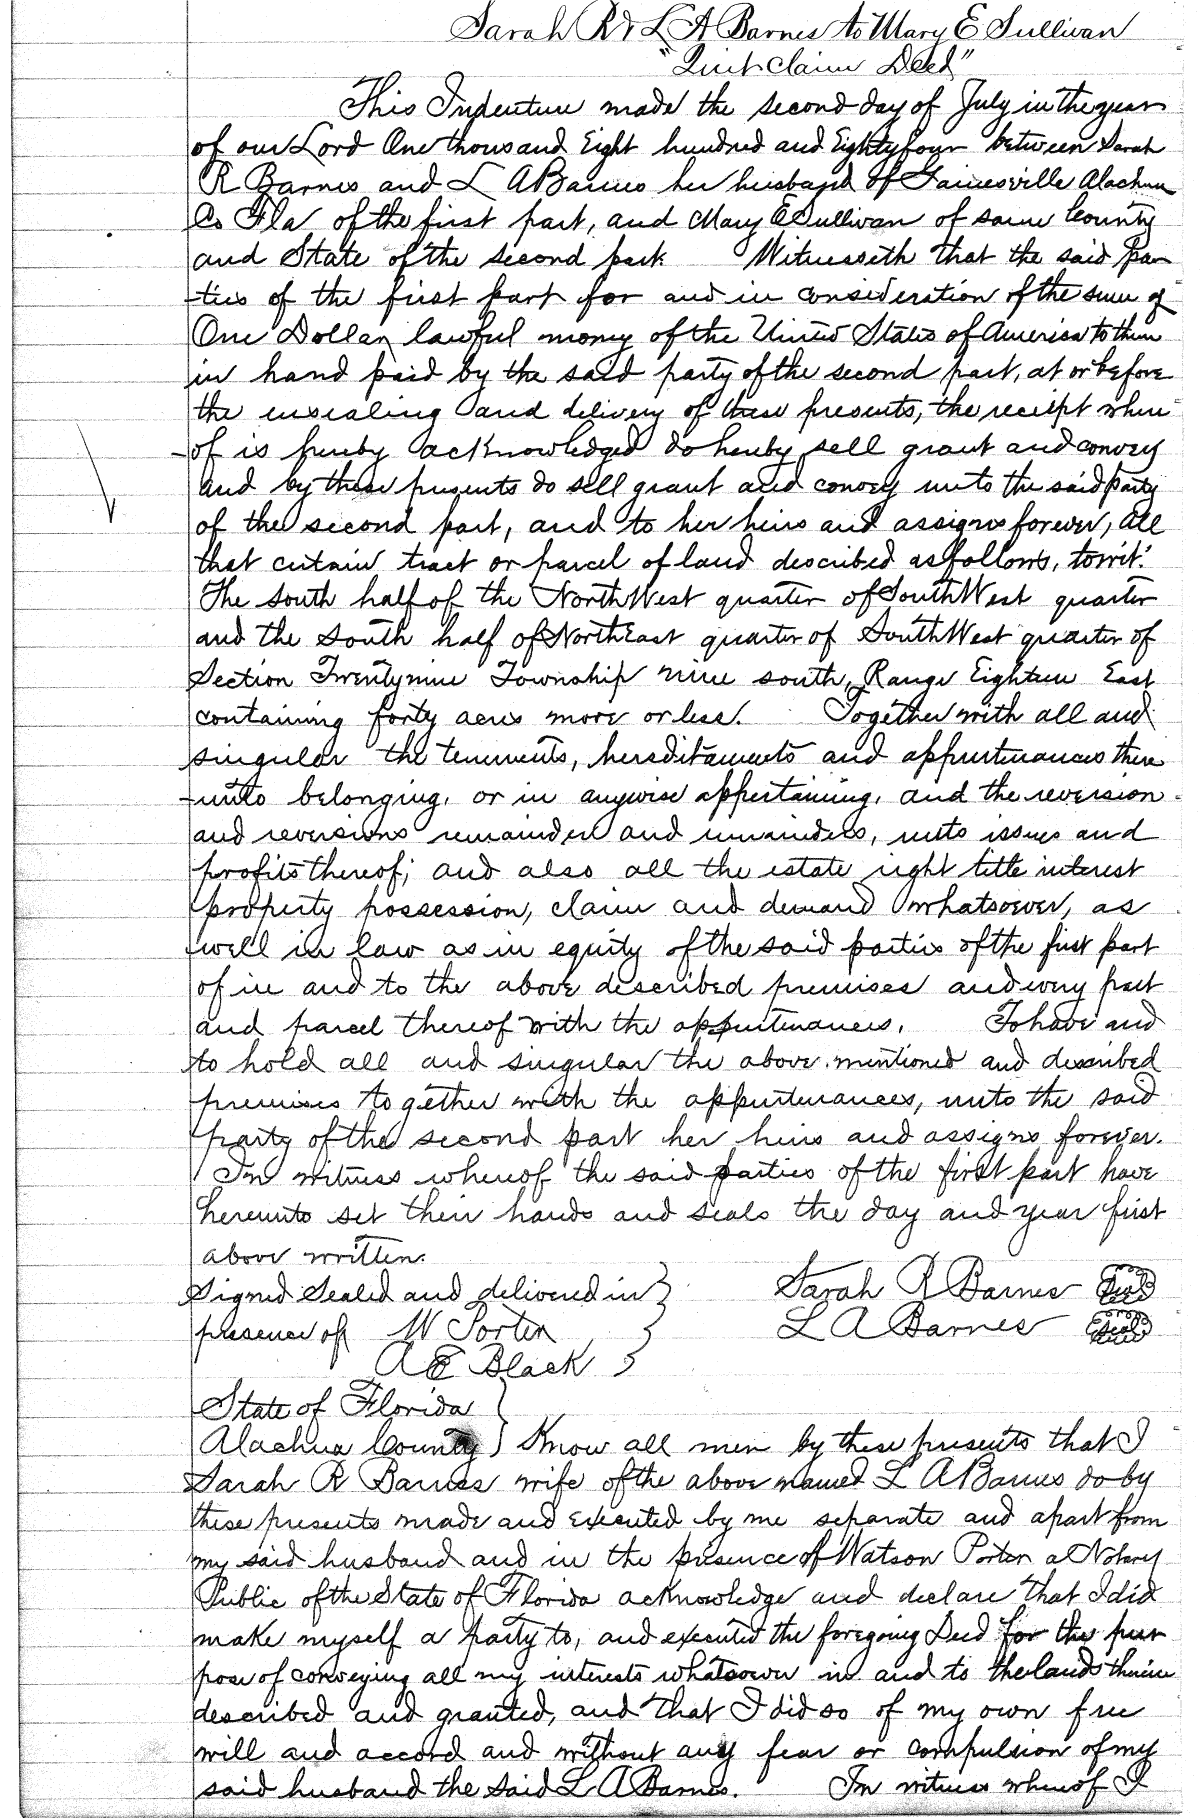 Sarah R & L A Barnes to Mary E Sullivan
"Quit Claim Deed"
This Indenture made the second day of July in the year
of our Lord One thousand Eight hundred and Eighty four between Sarah
R Barnes and L A Barnes her husband of Gainesville Alachua
Co Fla of the first part, and Mary E Sullivan of same County
and State of the second part. Witnesseth that the said par
-ties of the first part for and in consideration of the sum of
One Dollar lawful money of the United States of America to them
in hand paid by the said party of the second part, at or before
the ensealing and delivery of these presents, the receipt where
-of is hereby acknowledged do hereby sell grant and convey
and by these presents do sell grant and convey unto the said party
of the second part, and to her heirs and assigns forever, all
that certain tract or parcel of land described as follows, towit:
The south half of the North West quarter of South West quarter
and the south half of North East quarter of South West quarter of
Section Twenty nine Township nine south, Range Eighteen East
containing forty acres more or less. Together with all and
singular the tenements, hereditaments and appurtenances there
-unto belonging, or in anywise appertaining, and the reversion
and reversions remainder and remainders, rents issues and
profits thereof; and also all the estate right title interest
property possession, claim and demand whatsoever, as
well in law as in equity of the said parties of the first part
of in and to the above described premises and every part
and parcel thereof with the appurtenances. To have and
to hold all and singular the above mentioned and described
premises together with the appurtenances, unto the said
party of the second part her heirs and assigns forever.
In witness whereof the said parties of the first part have
hereunto set their hands and seals the day and year first
above written.
Signed Sealed and delivered in } Sarah R Barnes Seal
presence of W Porter } L A Barnes Seal
A E Black }
State of Florida }
Alachua County } Know all men by these presents that I
Sarah R Barnes wife of the above named L A Barnes do by
these presents made and executed by me separate and apart from
my said husband and in the presence of Watson Porter a Notary
Public of the State of Florida acknowledge and declare that I did
make myself a party to, and executed the foregoing Deed for the pur
pose of conveying all my interests whatsoever in and to the lands therein
described and granted, and that I did so of my own free
will and accord and without any fear or compulsion of my
said husband the said L A Barnes. In witness whereof I